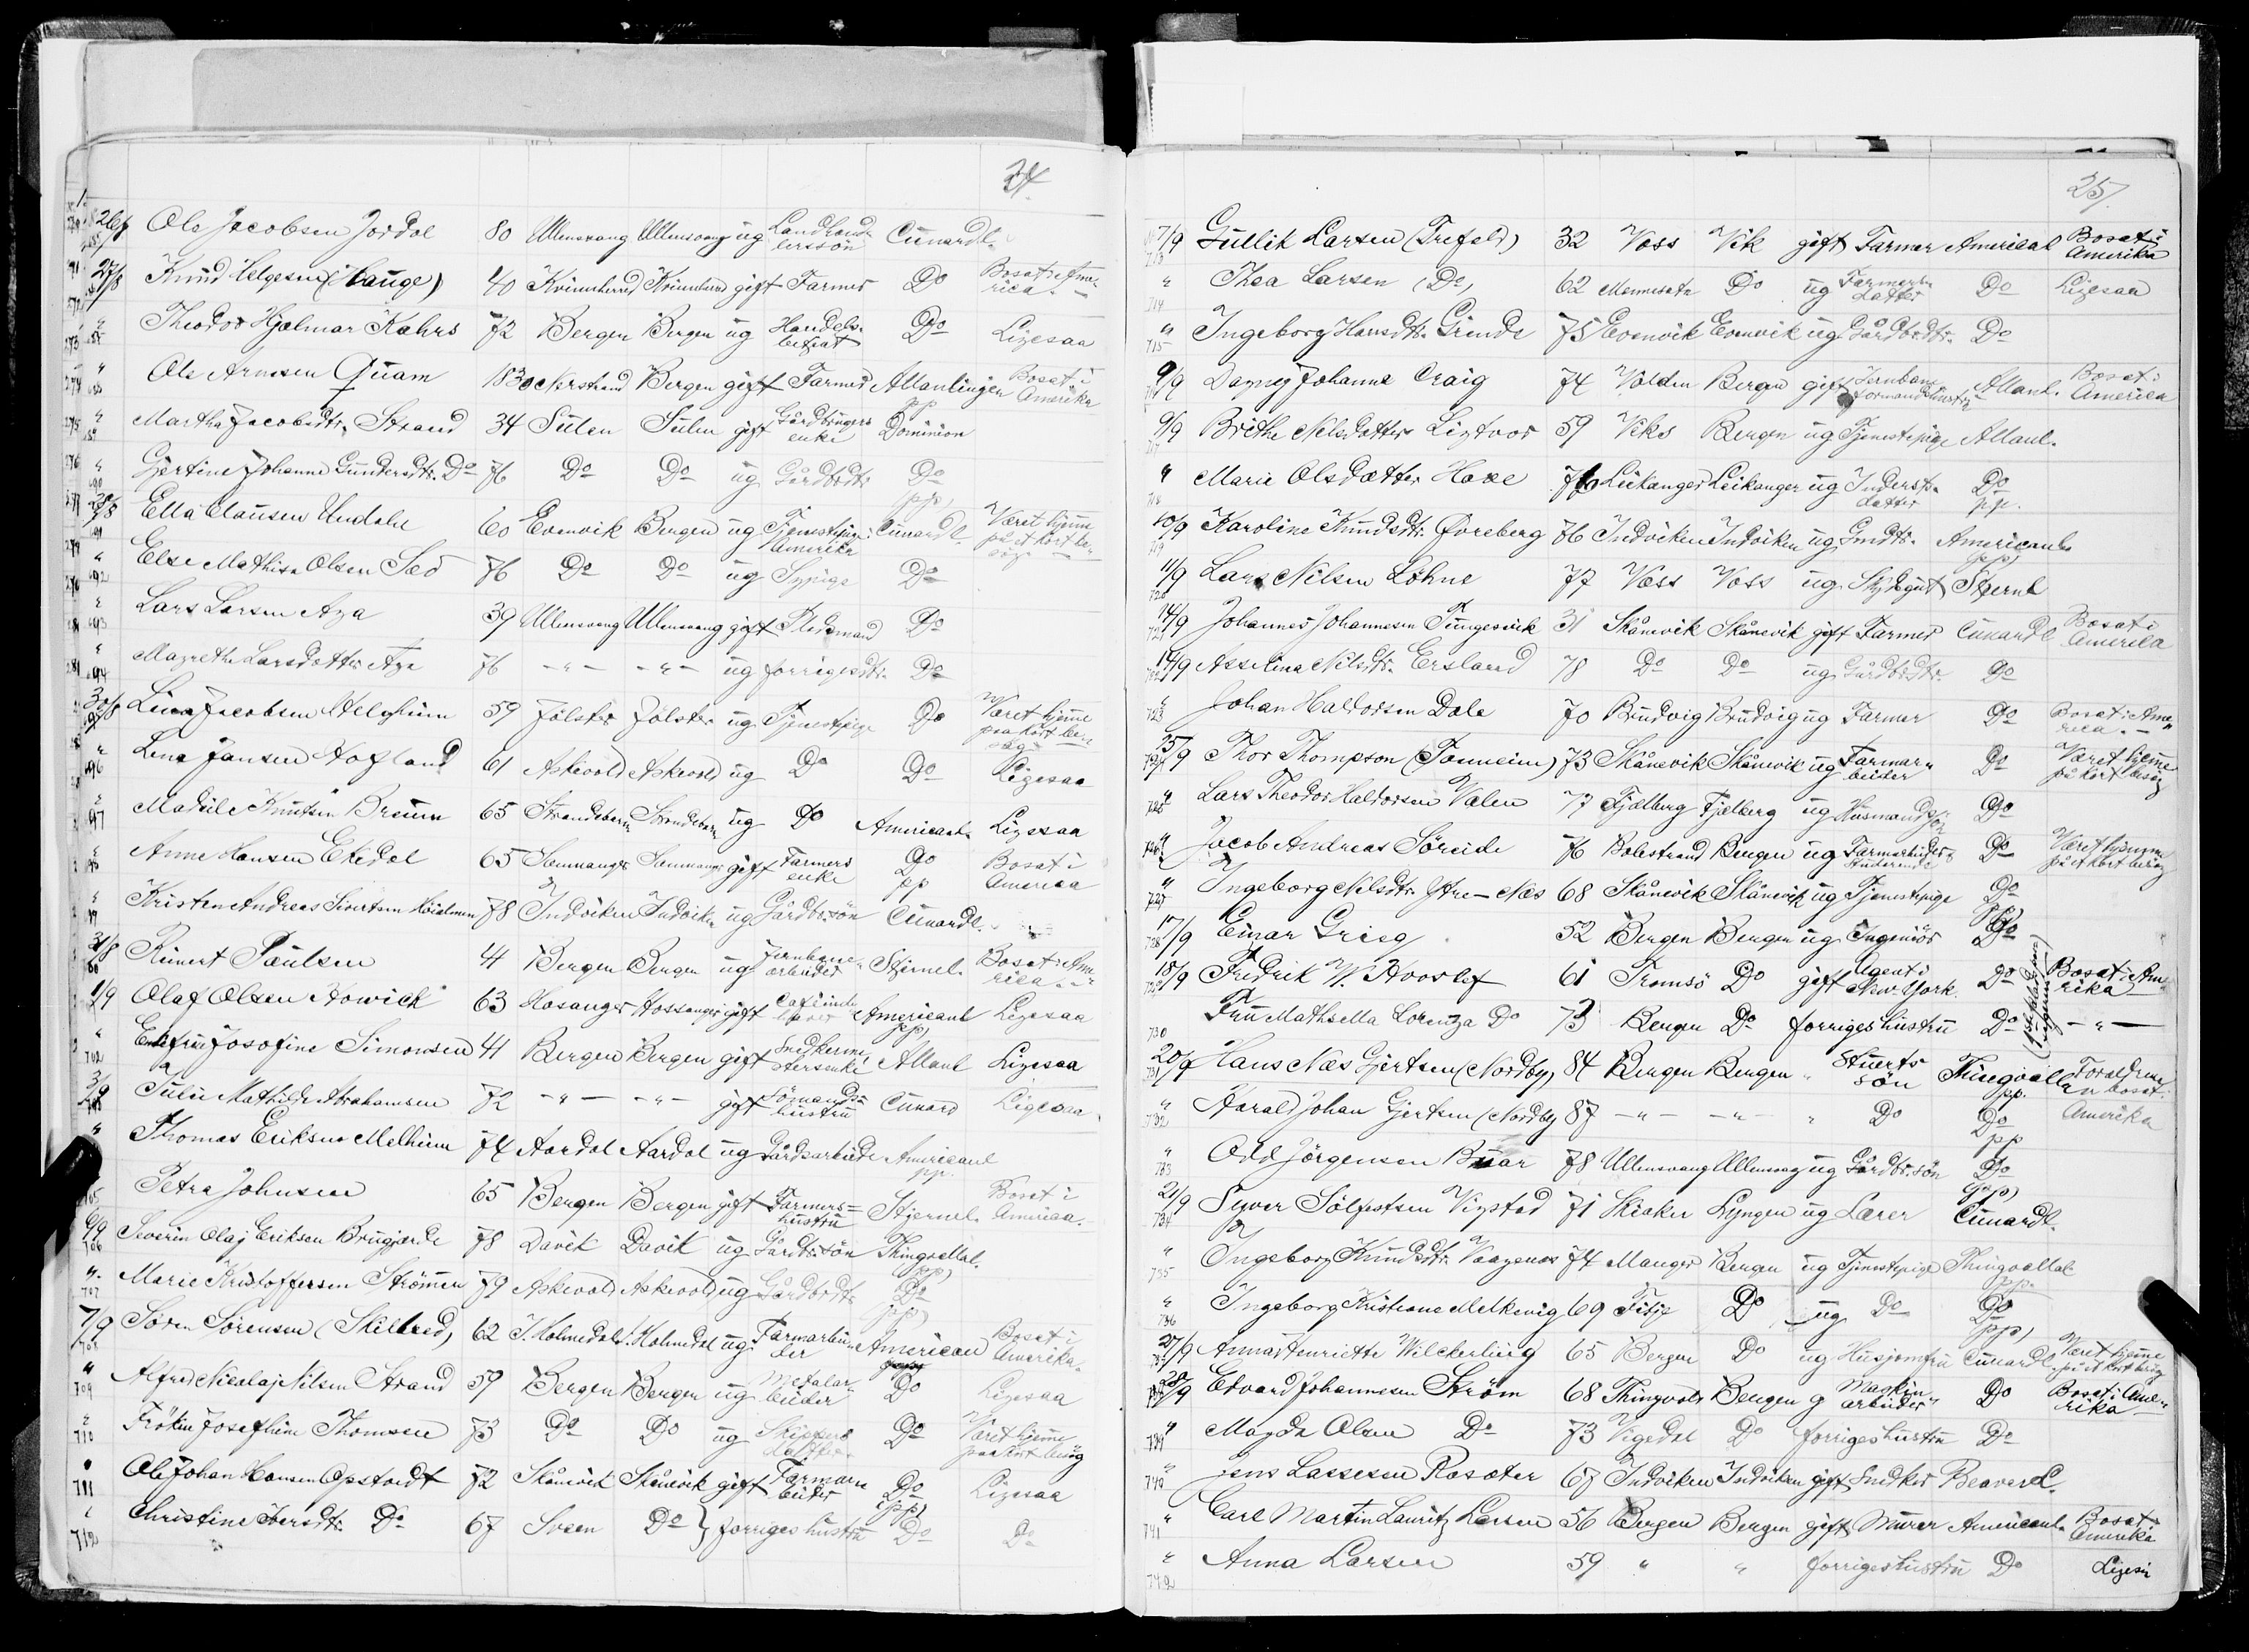 24.
26/8 Ole Jacobsen Jordal 80 Ullensvang Ullensvang ug Landhand- Cunardl.
lerssön
27/8 Knud Helgesen (Hauge) 40 Kvinnherred Kvinnherred gift Farmer Do Bosat i Ame-
rica.
" Theodor Hjalmar Kahrs 72 Bergen Bergen ug Handels- Do Ligesaa
betjent
" Ole Arnesen Quam 1830 Nerstrand Bergen gift Farmer Allanlinjen Bosat i
pp Amerika
" Martha Jacobsdtr. Strand 34 Sulen Sulen gift Gårdbrugers Dominion
enke
" Gjertine Johanne Gundersdtr. Do 76 Do Do ug Gårdbrdtr Do
(pp)
28/8 Ella Clausen Undahl 60 Evenvik Bergen ug Tjenestepige Cunardl. Været hjemme
Amerika på et kort be-
søg
" Else Mathisa Olsen Sæd 76 Do Do ug Sypige Do
" Lars Larsen Aga 39 Ullensvang Ullensvang gift Pledsmand Do
" Magrethe Larsdotter Aga 76 - " - - " - ug forrigesdtr. Do
30/8 Lina Jacobsen Helgheim 59 Jölster Jölster ug Tjenestepige Do Været hjemme
paa kort be-
søg
" Lena Jansen Hofland 61 Askevold Askevold ug Do Do Ligesaa
" Madele Knutsen Breum 65 Strandebarm Strandebarm ug Do Americanl. Ligesaa
" Anne Hansen Ekedal 65 Samnanger Samnanger gift Farmers Do Bosat i
enke pp America
" Kristen Andreas Sivertsen Hoialmen 78 Indviken Indviken ug Gårdbr.sön Cunardl.
31/8 Reinert Paulsen 41 Bergen Bergen ug Jernbane- Stjernel. Bosat i Ame-
arbeider rica.
1/9 Olaf Olsen Howick 63 Hosanger Hossanger gift Caféinde- Americanl Ligesaa
haver (pp)
" Enkefrue Josofine Simonsen 41 Bergen Bergen gift Snedkerme- Allanl Ligesaa
702 stersenke
3/9 Julie Mathilde Abrahamsen 72 - " - - " - gift Sömands- Cunard Ligesaa
703 hustru
" Thomas Eriksen Melheim 74 Aardal Aardal ug Gårdsarbeide Americanl
pp.
Petra Johnsen 65 Bergen Bergen gift Farmers= Stjernel. Bosat i
705 hustru America.
6/9 Severin Olaj Eriksen Brugjærde 78 Davik Davik ug Gårdbr.sön Thingvallal.
706 (pp)
" Marie Kristoffersen Strömmen 79 Askevold Askevold ug Gårdbrdtr Do
707 (pp)
7/9 Sören Sörensen (Skilbred) 62 I. Holmedal I. Holmedal ug Farmarbei- American Bosat i
708 der Amerika.
" Alfred Nicolaj Nilsen Strand 59 Bergen Bergen ug Metalar- Do Ligesaa
709 beider
" Fröken Josephine Thomsen 73 Do Do ug Skippers Do Været hjemme
710 datter paa kort besøg
" Ole Johan Hansen Opstvedt 72 Skånevik Skånevik gift Farmar- Do Ligesaa
711 beider (pp)
" Christine Iversdtr. Do 67 Sveen Do } forriges hustru Do Do
712
25/
7/9 Gullik Larsen (Trefald) 32 Voss Vik gift Farmer Americal Bosat i
713 Amerika
" Thea Larsen (Do) 62 Mennesota Do ug Farmers Do Ligesaa
714 datter
" Ingeborg Hansdtr. Grinde 75 Evenvik Evenvik ug Gårdbrdtr. Do
715
9/9 Dagney Johanne Craig 74 Volden Bergen gift Jernbane- Allanl. Bosat i
formandshustru America
9/9 Brithe Nilsdatter Ligtvor 59 Viks Bergen ug Tjenestepige Allanl.
717
" Marie Olsdatter Haxe 76 Leikanger Leikanger ug Inderst- Do
718 datter pp.
10/9 Karoline Knudsdtr. Övreberg 76 Indviken Indviken ug Gmdtr. Americanl.
719 (pp)
11/9 Lars Nilsen Löhne 77 Voss Voss ug Skydsgut Stjernl
720
14/9 Johannes Johannesen Tungesvik 31 Skånevik Skånevik gift Farmer Cunardl Bosat i
721 America
14/9 Asselina Nilsdtr. Ersland 78 Do Do ug Gårdbrdtr. Do
722
" Johan Haldorsen Dale 70 Brudvig Brudvig ug Farmer Do Bosat i Ame-
723 rica.
15/9 Thor Thompson (Tanneim) 73 Skånevik Skånevik ug Farmar- Do Været hjemme
724 beider på kort besøg
" Lars Theodor Haldorsen Valen 77 Fjelberg Fjelberg ug Husmandssön Do
725
" Jacob Andreas Söreide 76 Balestrand Bergen ug Farmarbeider Do Været hjemme
726 studerende på et kort besøg
" Ingeborg Nilsdtr. Ytre-Næs 68 Skånevik Skånevik ug Tjenestepige Do
727 pp
17/9 Einar Grieg 52 Bergen Bergen ug Ingeniör Do
728
18/9 Fredrik W. Hvoslef 61 Tromsö Do gift Agent i Do Bosat i Ame-
729 New York. rika
Fru Mathella Lorenza Do 73 Bergen Do forriges hustru Do - " -
730
20/9 Hans Næs Gjertsen (Nordby) 84 Bergen Bergen " Stuerts Thingvalla Foraldrene
731 sön pp. er bosat i
" Harald Johan Gjertsen (Nordby 87 - " - - " - " Do Do Amerika
732 pp
" Odd Jörgensen Buar 78 Ullensvang Ullensvang ug Gårdbr.sön Do
733 (pp)
21/9 Syver Sölfestsen Vigstad 71 Skiaker Lyngen ug Lærer Cunardl.
734
" Ingeborg Knudsdtr. Vaagenes 74 Manger Bergen ug Tjenestepige Thingvallal
735 pp.
" Ingeborg Kristiane Melkevig 69 Fitje Do ug Do Do
736 (pp)
27/9 Anna Henriette Wilckerling 65 Bergen Do ug Husjomfru Cunardl. Været hjemme
på et kort besøg
28/9 Edvard Johannesen Ström 68 Thingvold Bergen g Maskin- Do Bosat i Ame-
arbeider rika
" Magda Olsen Do 73 Vigedal Do forriges hustru Do
739
" Jens Lassesen Rosæter 67 Indviken Indviken gift Snedker Beaverl.
740
" Carl Martin Lauritz Larsen 56 Bergen Bergen gift Murer Americanl. Bosat i
741 Amerika
" Anna Larsen 59 " " forriges hustru Do Ligesaa
742